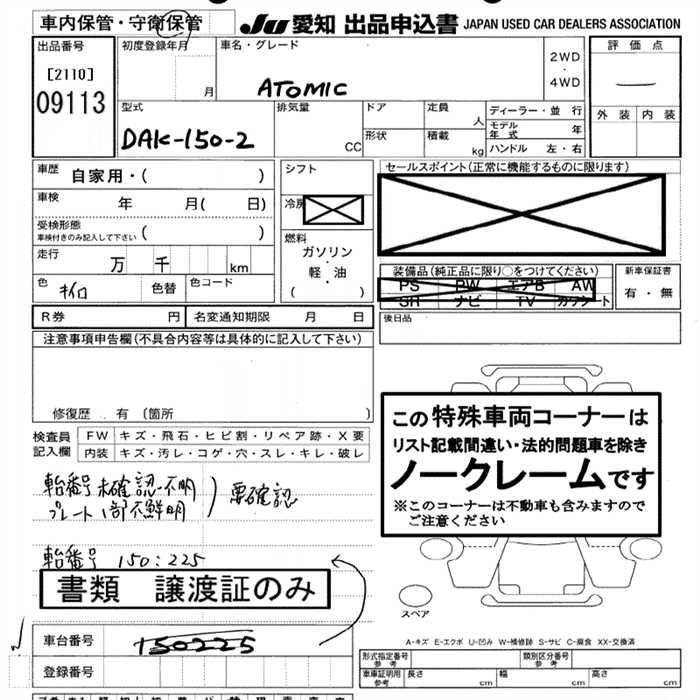 車内保管・守衛保管
JU 愛知 出品申込書 JAPAN USED CAR DEALERS ASSOCIATION
出品番号
[2110]
09113
初度登録年月
月
車名・グレード
ATOMIC
2WD
・
4WD
評価点
外装 内装
型式
DAK-150-2
排気量
CC
ドア
形状
定員
人
積載
kg
ディーラー・並行
モデル年式 年
ハンドル 左・右
車歴
自家用・( )
車検
年 月( 日)
受検形態
車検付きのみ記入して下さい ( )
走行
万 千 km
色
キイロ
色替
色コード
シフト
冷房
燃料
ガソリン
・
軽・油
( )
セールスポイント(正常に機能するものに限ります)
装備品(純正品に限り○をつけてください)
PS PW エアB AW
SR ナビ TV カワシート
新車保証書
有・無
後日品
R券 円
名変通知期限 月 日
注意事項申告欄(不具合内容等は具体的に記入して下さい)
修復歴 有 (箇所 )
検査員記入欄
FW キズ・飛石・ヒビ割・リペア跡・X要
内装 キズ・汚レ・コゲ・穴・スレ・キレ・破レ
この特殊車両コーナーは
リスト記載間違い・法的問題車を除き
ノークレームです
※このコーナーは不動車も含みますので
ご注意ください
未確認・不明
プレート1部不鮮明
要確認
150:225
書類 譲渡証のみ
車台番号
150225
登録番号
スペア
A-キズ E-エクボ U-凹み W-補修跡 S-サビ C-腐食 XX-交換済
形式指定番号
参考
類別区分番号
参考
車庫証明用
参考
長さ
幅
高さ
cm
cm